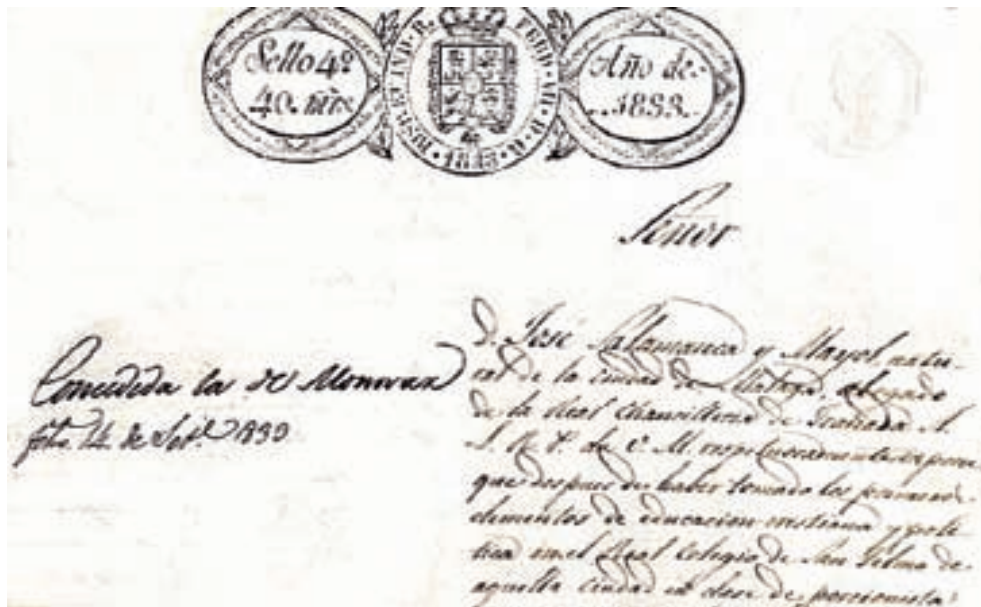 Sello 4º
40. mrs.
HISP. ET IND. R. FERD. VII. D. G. 1833
Año de
1833.
Señor
Concedida la de Monovar
fho. 14 de Setᵉ 1833
D. José Salamanca y Mayol, natu-
ral de la ciudad de Málaga, abogado
de la Real Chancilleria de Granada A.
L. R. P. de V. M. respetuosamente expone
que despues de haber tomado los primeros
elementos de educacion cristiana y poli-
tica en el Real Colegio de San Telmo de
aquella ciudad en clase de porcionista